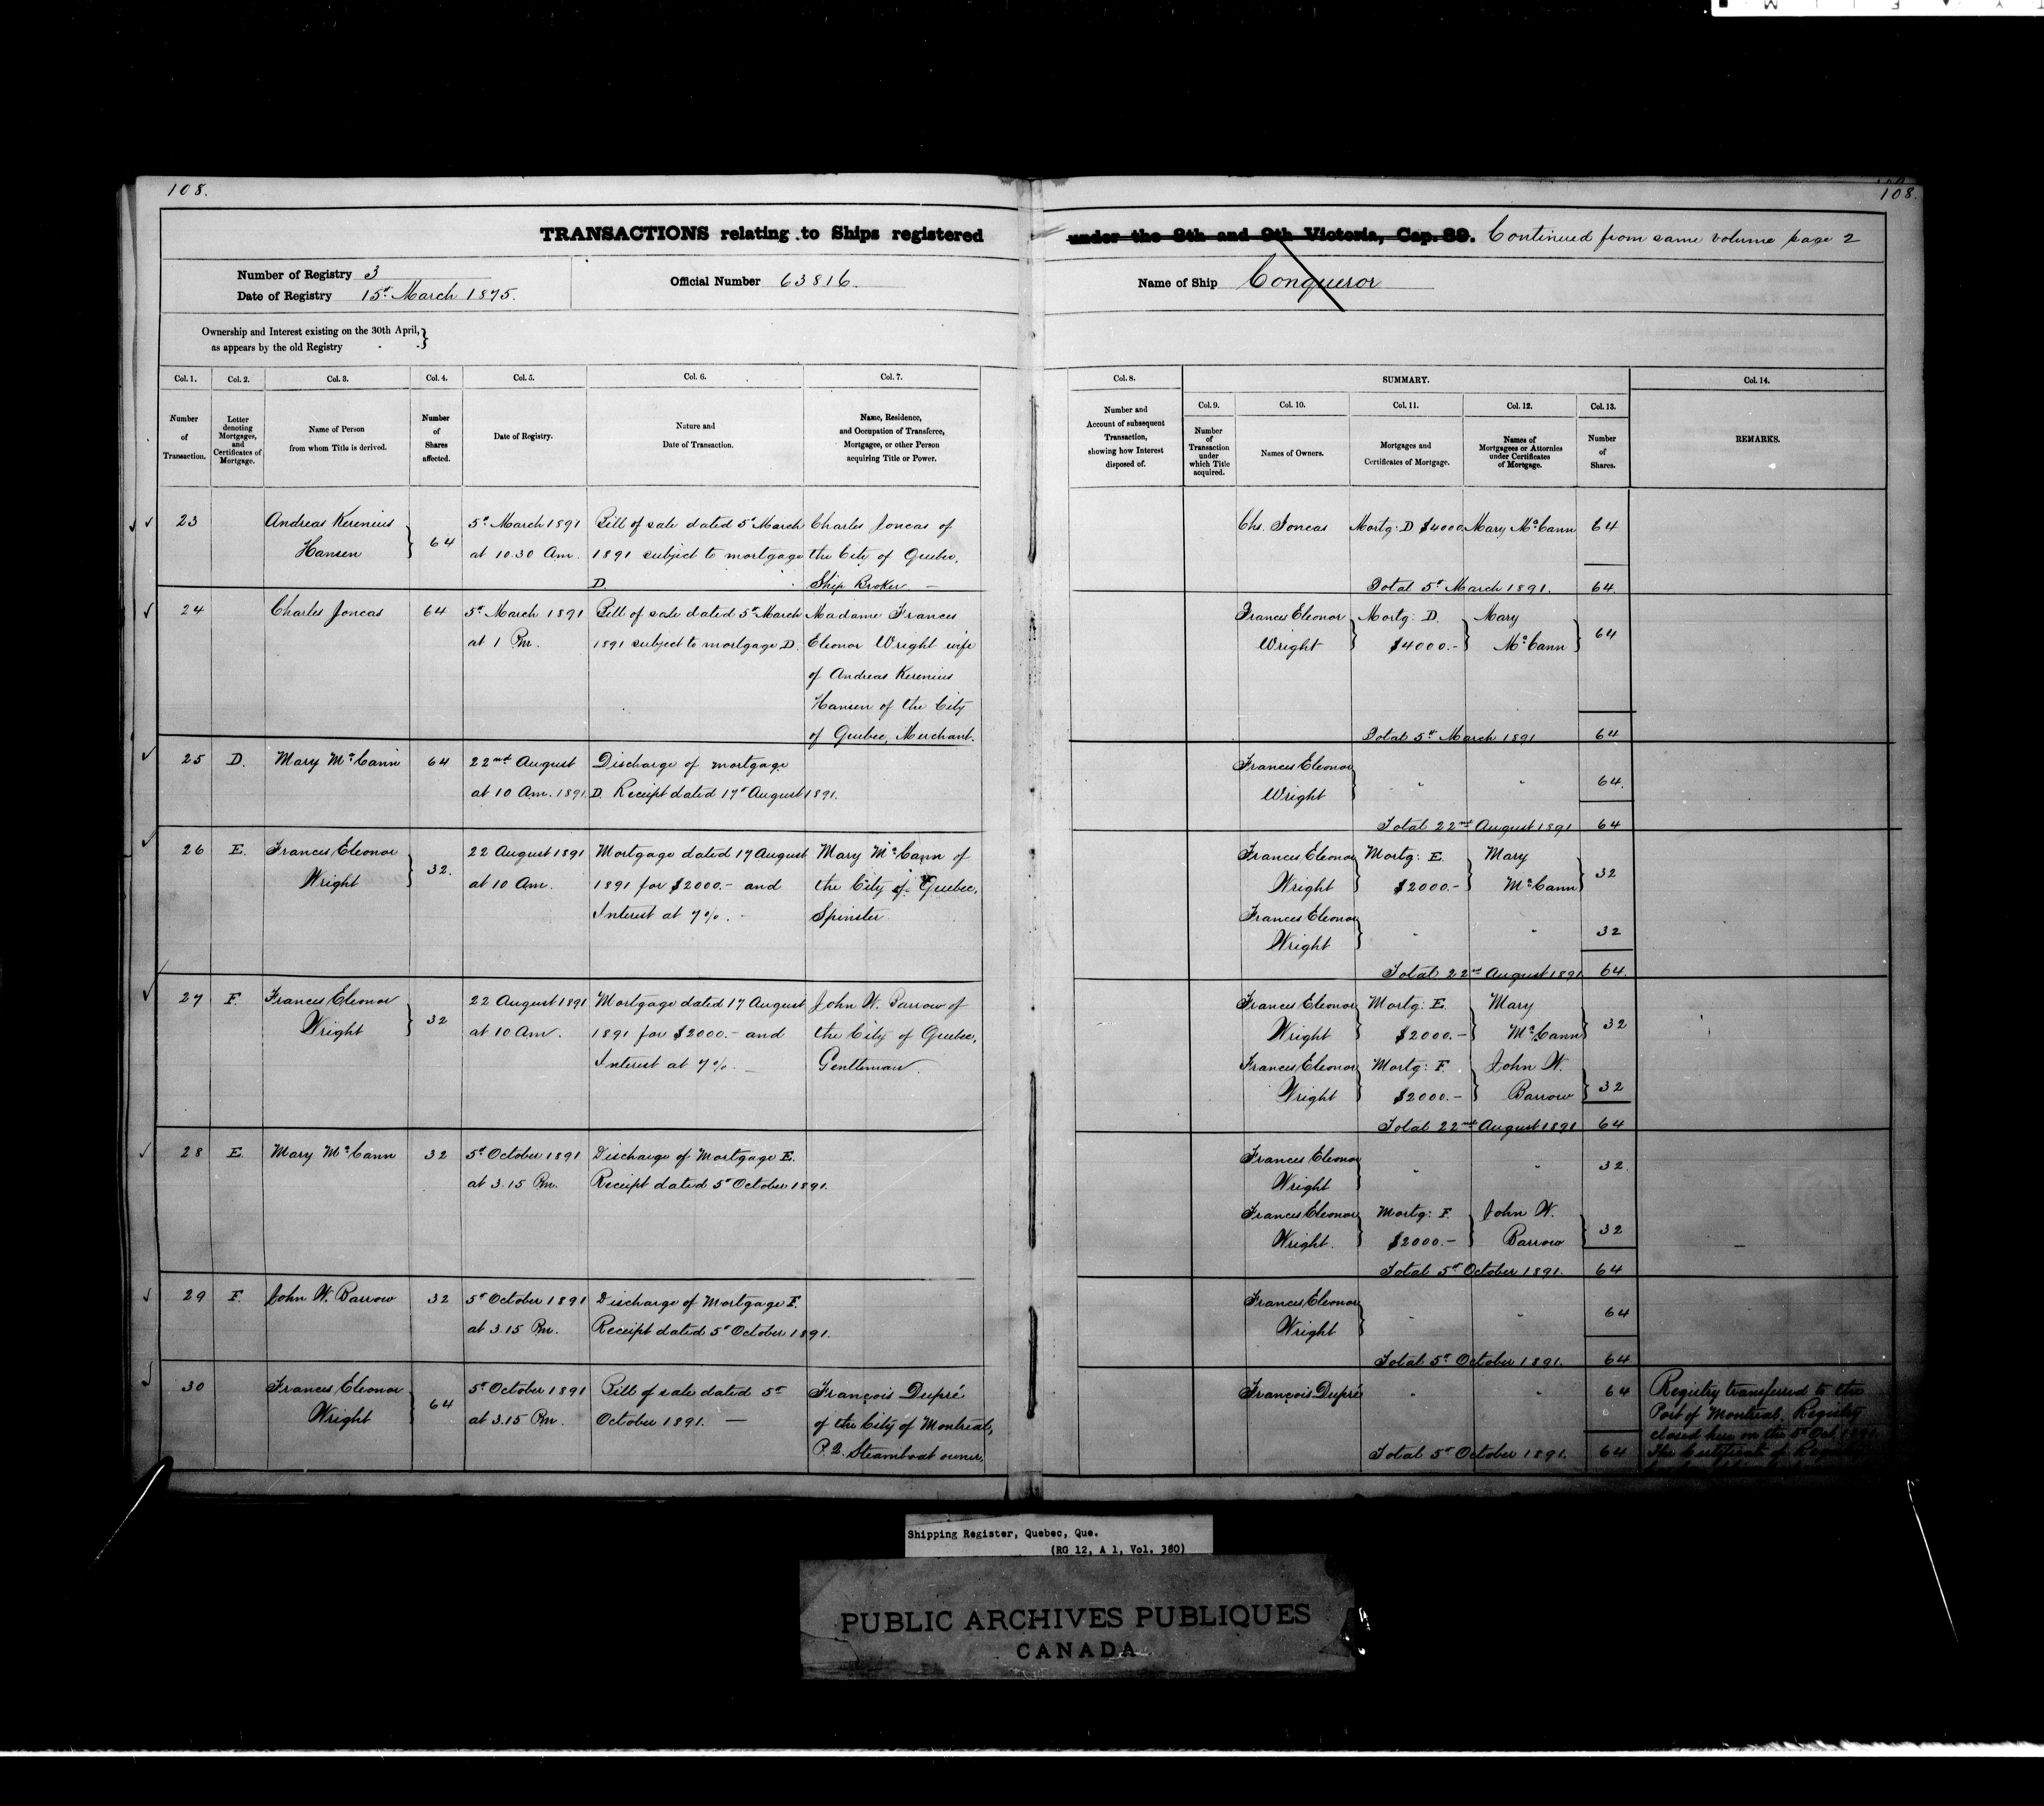 108.
108.
TRANSACTIONS relating to Ships registered under the 8th and 9th Victoria, Cap. 89. Continued from same volume page 2
Number of Registry 3
Date of Registry 15t March 1875.
Official Number 63816.
Name of Ship Conqueror
Ownership and Interest existing on the 30th April,
as appears by the old Registry
Col. 1.
Number
of
Transaction.
Col. 2.
Letter
denoting
Mortgages,
and
Certificates of
Mortgage.
Col. 3.
Name of Person
from whom Title is derived.
Col. 4.
Number
of
Shares
affected.
Col. 5.
Date of Registry.
Col. 6.
Nature and
Date of Transaction.
Col. 7.
Name, Residence,
and Occupation of Transferee,
Mortgagee, or other Person
acquiring Title or Power.
Col. 8.
Number and
Account of subsequent
Transaction,
showing how Interest
disposed of.
SUMMARY.
Col. 9.
Number
of
Transaction
under
which Title
acquired.
Col. 10.
Names of Owners.
Col. 11.
Mortgages and
Certificates of Mortgage.
Col. 12.
Names of
Mortgagees or Attornies
under Certificates
of Mortgage.
Col. 13.
Number
of
Shares.
Col. 14.
REMARKS.
23 Andreas Kerenius 5t March 1891 Bill of sale dated 5t March Charles Joncas of Chs. Joncas Mortg: D $4000 Mary McCann 64
Hansen 64 at 10.30 Am. 1891 subject to mortgage the City of Quebec,
D. Ship Broker — Total 5t March 1891. 64.
24 Charles Joncas 64 5t March 1891 Bill of sale dated 5t March Madame Frances Frances Eleonor Mortg: D. Mary 64
at 1 Pm. 1891 subject to mortgage D. Eleonor Wright wife Wright $4000.- McCann
of Andreas Kerenius
Hansen of the City
of Quebec, Merchant. Total 5t March 1891 64
25 D. Mary McCann 64 22nd August Discharge of mortgage Frances Eleonor " " 64.
at 10 Am. 1891. D. Receipt dated 17t August 1891. Wright
Total 22nd August 1891 64
26 E. Frances Eleonor 32. 22 August 1891 Mortgage dated 17 August Mary McCann of Frances Eleonor Mortg: E. Mary 32
Wright at 10 Am. 1891 for $2000.- and the City of Quebec, Wright $2000.- McCann
Interest at 7%. - Spinster. Frances Eleonor
Wright " " 32
Total 22nd August 1891 64.
27 F. Frances Eleonor 32 22 August 1891 Mortgage dated 17 August John W. Barrow of Frances Eleonor Mortg: E. Mary 32
Wright at 10 Am. 1891 for $2000.- and the City of Quebec, Wright $2000.- McCann
Interest at 7%. — Gentleman. Frances Eleonor Mortg: F. John W. 32
Wright $2000.- Barrow
Total 22nd August 1891 64
28 E. Mary McCann 32 5t October 1891 Discharge of Mortgage E. Frances Eleonor " " 32.
at 3.15 Pm. Receipt dated 5t October 1891. Wright
Frances Eleonor Mortg: F. John W. 32
Wright. $2000.- Barrow
Total 5t October 1891. 64
29 F. John W. Barrow 32 5t October 1891 Discharge of Mortgage F. Frances Eleonor " " 64
at 3.15 Pm. Receipt dated 5t October 1891. Wright
Total 5t October 1891. 64
30 Frances Eleonor 64 5t October 1891 Bill of sale dated 5t François Dupré François Dupré " " 64 Registry transferred to the
Wright at 3.15 Pm. October 1891. — of the City of Montreal, Port of Montreal. Registry
closed here on the 5t Oct. 1891.
P.Q. Steamboat owner. Total 5t October 1891. 64 The Certificate of
Shipping Register, Quebec, Que.
(RG 12, A 1, Vol. 380)
PUBLIC ARCHIVES PUBLIQUES
CANADA